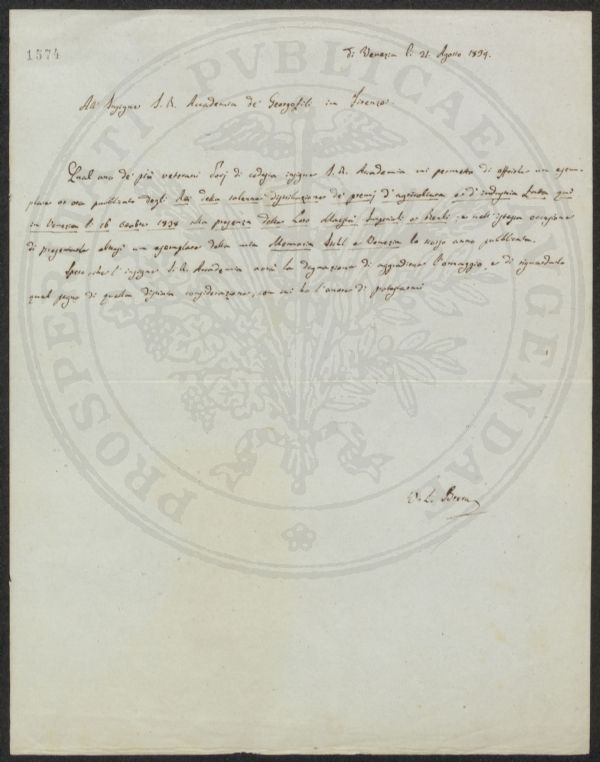 1574
di Venezia li 21. Agosto 1839.
All' Insigne I. R. Accademia de' Georgofili in Firenze.
Qual uno de' più veterani Socj di codesta insigne I. R. Accademia mi permetto di offerirle un esem-
plare or ora pubblicato degli Atti della solenne distribuzione de' premj d'agricoltura e d'industria fatta qui
in Venezia li 16 ottobre 1838 alla presenza delle Loro Maestà Imperiali e Reali, e nell' istessa occasione
di presentarle altresì un esemplare della mia Memoria Venezia lo stesso anno pubblicata.
Spero, che l' insigne I. R. Accademia avrà la degnazione di aggradirne l'omaggio, e di riguardarlo
qual segno di quella distinta considerazione, con cui ho l'onore di protestarmi
PROSPERITATI PUBLICAE AUGENDAE